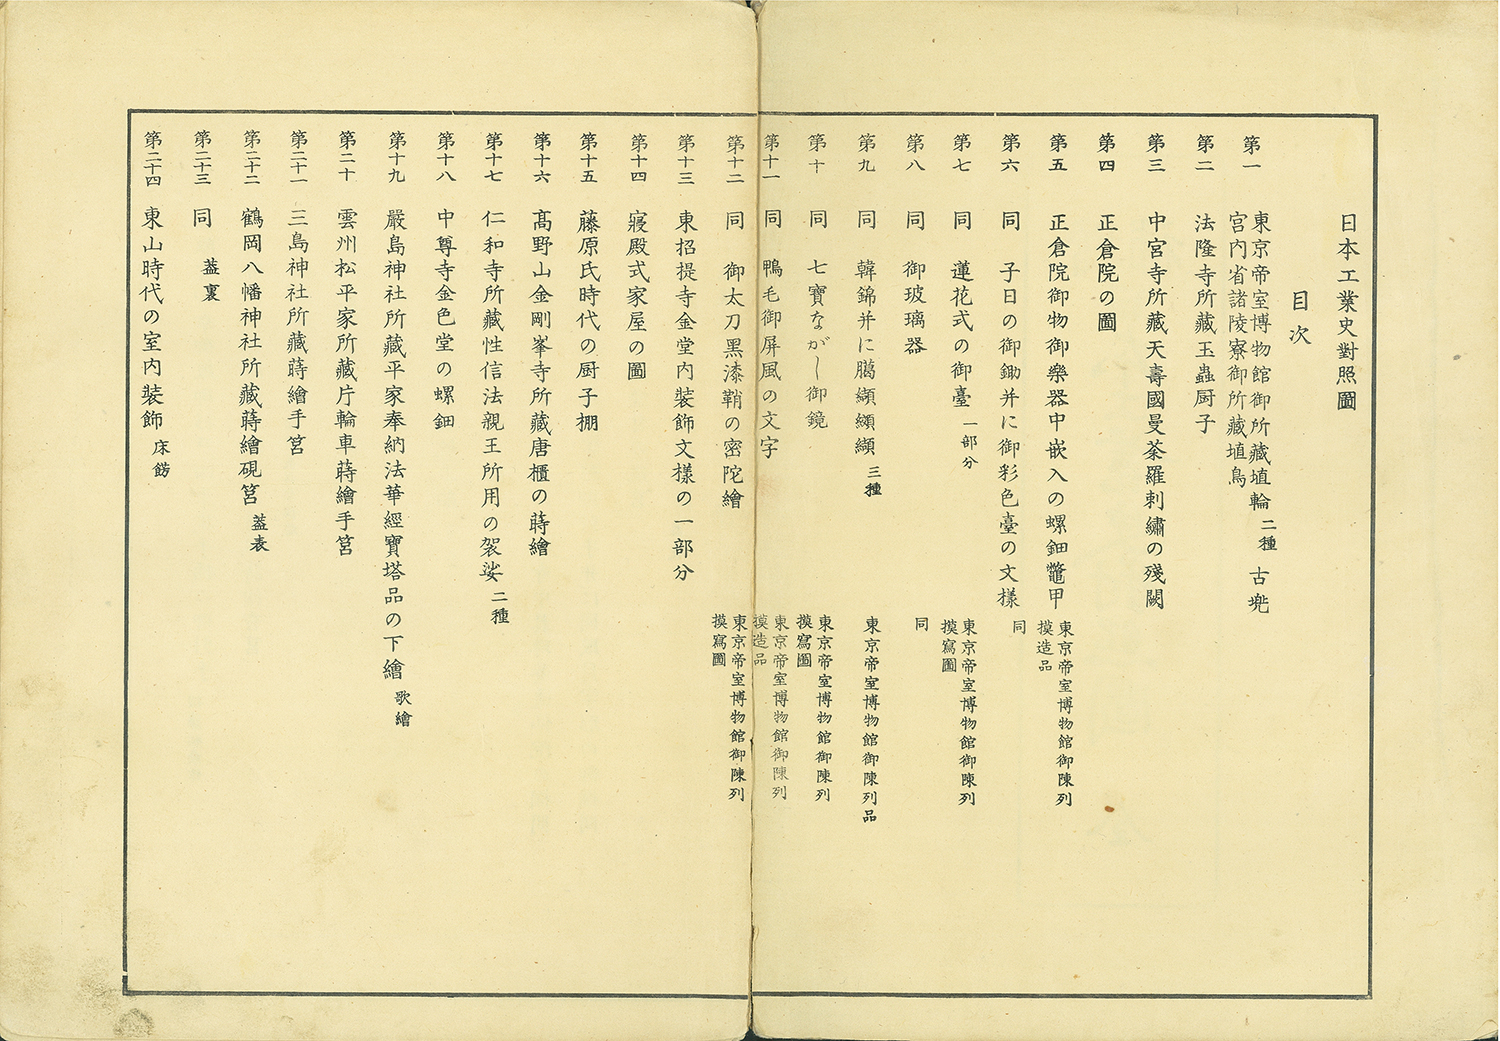 日本工業史對照圖
目次
第一 東京帝室博物館御所藏埴輪 二種 古兜
宮内省諸陵寮御所藏埴鳥
第二 法隆寺所藏玉蟲厨子
第三 中宮寺所藏天壽國曼荼羅刺繡の殘闕
第四 正倉院の圖
第五 正倉院御物御樂器中嵌入の螺鈿鼈甲 東京帝室博物館御陳列
摸造品
第六 同 子日の御鋤并に御彩色臺の文樣 同
第七 同 蓮花式の御臺 一部分 東京帝室博物館御陳列
摸寫圖
第八 同 御玻璃器 同
第九 同 韓錦并に﨟纈纐纈 三種 東京帝室博物館御陳列品
第十 同 七寶ながし御鏡 東京帝室博物館御陳列
摸寫圖
第十一 同 鴨毛御屏風の文字 東京帝室博物館御陳列
摸造品
第十二 同 御太刀黑漆鞘の密陀繪 東京帝室博物館御陳列
摸寫圖
第十三 東招提寺金堂内裝飾文樣の一部分
第十四 寢殿式家屋の圖
第十五 藤原氏時代の厨子棚
第十六 髙野山金剛峯寺所藏唐櫃の蒔繪
第十七 仁和寺所藏性信法親王所用の袈娑 二種
第十八 中尊寺金色堂の螺鈿
第十九 嚴島神社所藏平家奉納法華經寶塔品の下繪 歌繪
第二十 雲州松平家所藏片輪車蒔繪手筥
第二十一 三島神社所藏蒔繪手筥
第二十二 鶴岡八幡神社所藏蒔繪硯筥 蓋表
第二十三 同 蓋裏
第二十四 東山時代の室内裝飾 床餝